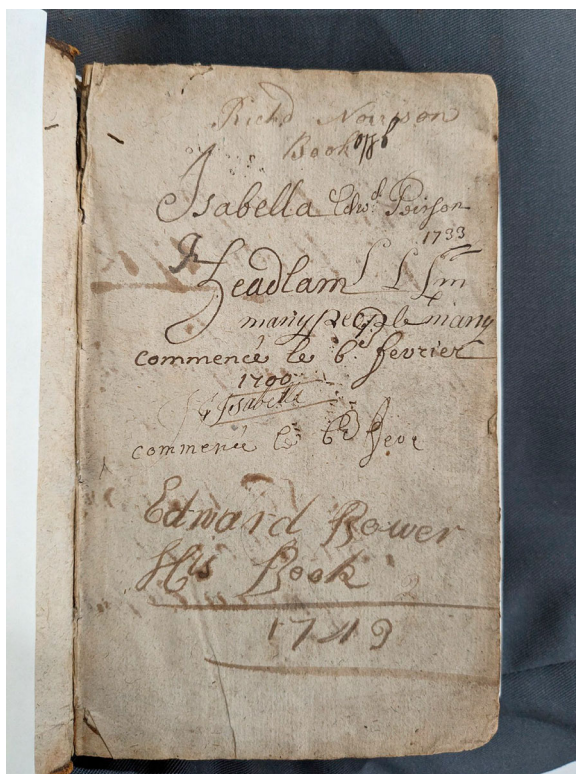 Richd Norrison
Book
Isabella Edwd Peirson
1733
Headlam
many people many
commencé le 6e fevrier
1700
Isabella
commencé le 6 fevr
Edward Bower
His Book
1749